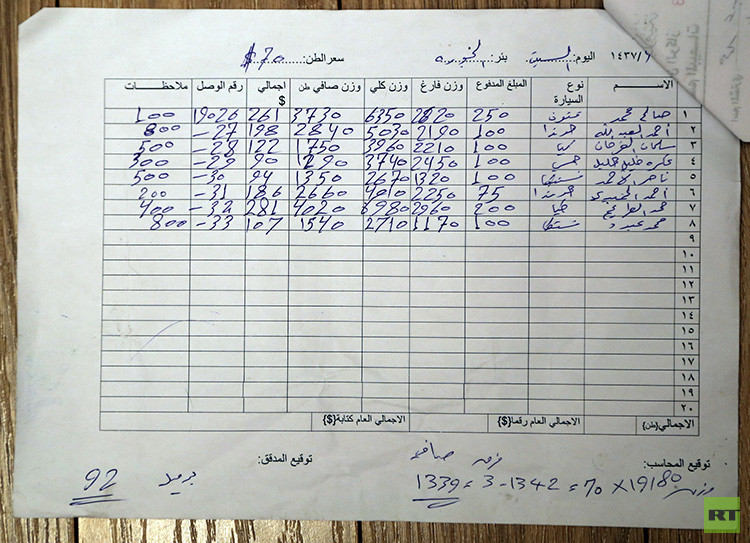 ١٤٣٧/٦ اليوم: السبت بئر: سعر الطن: 70$
الاســـم نوع السيارة المبلغ المدفوع وزن فارغ وزن كلي وزن صافي طن اجمالي $ رقم الوصل ملاحظات
١ صالح محمد 250 2620 6350 3730 261 19026 100
٢ احمد العبدالله 100 2190 5030 2840 198 27- 800
٣ سلمان الفرحان كيا 100 2210 3960 1750 122 28- 500
٤ 100 2450 3740 1290 90 29- 300
٥ ناصر الاحمد 100 1320 2670 1350 94 30- 500
٦ احمد 75 2250 4910 2660 186 31- 200
٧ محمد 200 2960 6980 4020 281 32- 400
٨ محمد عبود 100 1170 2710 1540 107 33- 800
٩
١٠
١١
١٢
١٣
١٤
١٥
١٦
١٧
١٨
١٩
٢٠
الاجمالي{طن} الاجمالي العام رقما{$} الاجمالي العام كتابة{$}
توقيع المحاسب: توقيع المدقق:
صافي
وزن 19180 × 70 = 1342 - 3 = 1339 92
RT